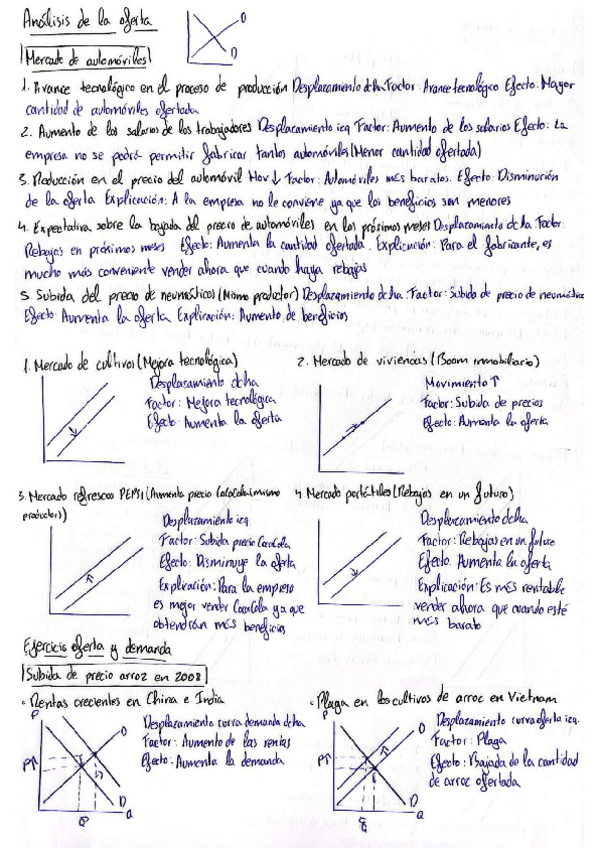 Análisis de la oferta
O
D
Mercado de automóviles
1. Avance tecnológico en el proceso de producción Desplazamiento dcha Factor: Avance tecnológico Efecto: Mayor
cantidad de automóviles ofertada
2. Aumento de los salarios de los trabajadores Desplazamiento izq Factor: Aumento de los salarios Efecto: La
empresa no se podrá permitir fabricar tantos automóviles (Menor cantidad ofertada)
3. Reducción en el precio del automóvil Mov ↓ Factor: Automóviles más baratos. Efecto: Disminución
de la oferta Explicación: A la empresa no le conviene ya que los beneficios son menores
4. Expectativa sobre la bajada del precio de automóviles en los próximos meses Desplazamiento dcha Factor:
Rebajas en próximos meses Efecto: Aumenta la cantidad ofertada. Explicación: Para el fabricante, es
mucho más conveniente vender ahora que cuando haya rebajas
5. Subida del precio de neumáticos (Mismo productor) Desplazamiento dcha. Factor: Subida de precio de neumáticos
Efecto: Aumenta la oferta Explicación: Aumento de beneficios
1. Mercado de cultivos (Mejora tecnológica)
Desplazamiento dcha
Factor: Mejora tecnológica
Efecto: Aumenta la oferta
2. Mercado de viviendas (Boom inmobiliario)
Movimiento ↑
Factor: Subida de precios
Efecto: Aumenta la oferta
3. Mercado refrescos PEPSI (Aumenta precio Cocacola (mismo
productor))
Desplazamiento izq
Factor: Subida precio CocaCola
Efecto: Disminuye la oferta
Explicación: Para la empresa
es mejor vender CocaCola ya que
obtendrán más beneficios
4. Mercado portátiles (Rebajas en un futuro)
Desplazamiento dcha
Factor: Rebajas en un futuro
Efecto: Aumenta la oferta
Explicación: Es más rentable
vender ahora que cuando esté
más barato
Ejercicio oferta y demanda
Subida de precio arroz en 2008
· Rentas crecientes en China e India
Desplazamiento curva demanda dcha
Factor: Aumento de las rentas
Efecto: Aumenta la demanda
P
O
P↑
D
Q
· Plaga en los cultivos de arroz en Vietnam
Desplazamiento curva oferta izq.
Factor: Plaga
Efecto: Bajada de la cantidad
de arroz ofertada
P
O
P↑
D
Q